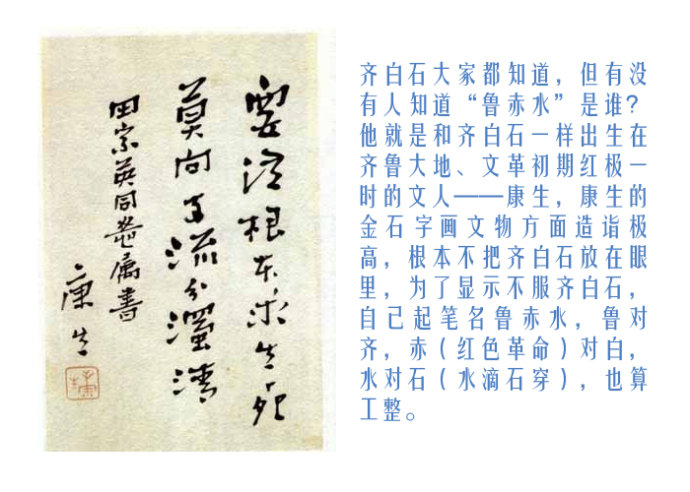 要须根本求生死
莫向支流分濁清
田家英同志属書
康生
齐白石大家都知道，但有没
有人知道“鲁赤水”是谁？
他就是和齐白石一样出生在
齐鲁大地、文革初期红极一
时的文人——康生，康生的
金石字画文物方面造诣极
高，根本不把齐白石放在眼
里，为了显示不服齐白石，
自己起笔名鲁赤水，鲁对
齐，赤（红色革命）对白，
水对石（水滴石穿），也算
工整。